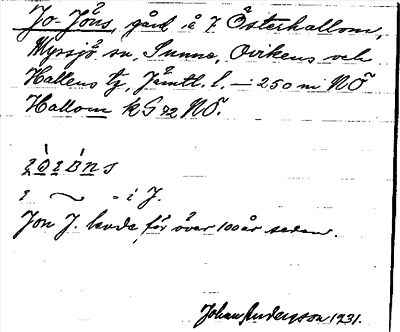 Jo-Jöns, gård i å 7 Österhallom,
Myssjö sn, Sunne, Ovikens och
Hallens tg, Jämtl. l. — 250 m NÖ
Hallom k G 72 NÖ.
i ~ - i J.
Jon J. levde för över 100 år sedan.
Johan Anderson 1931.